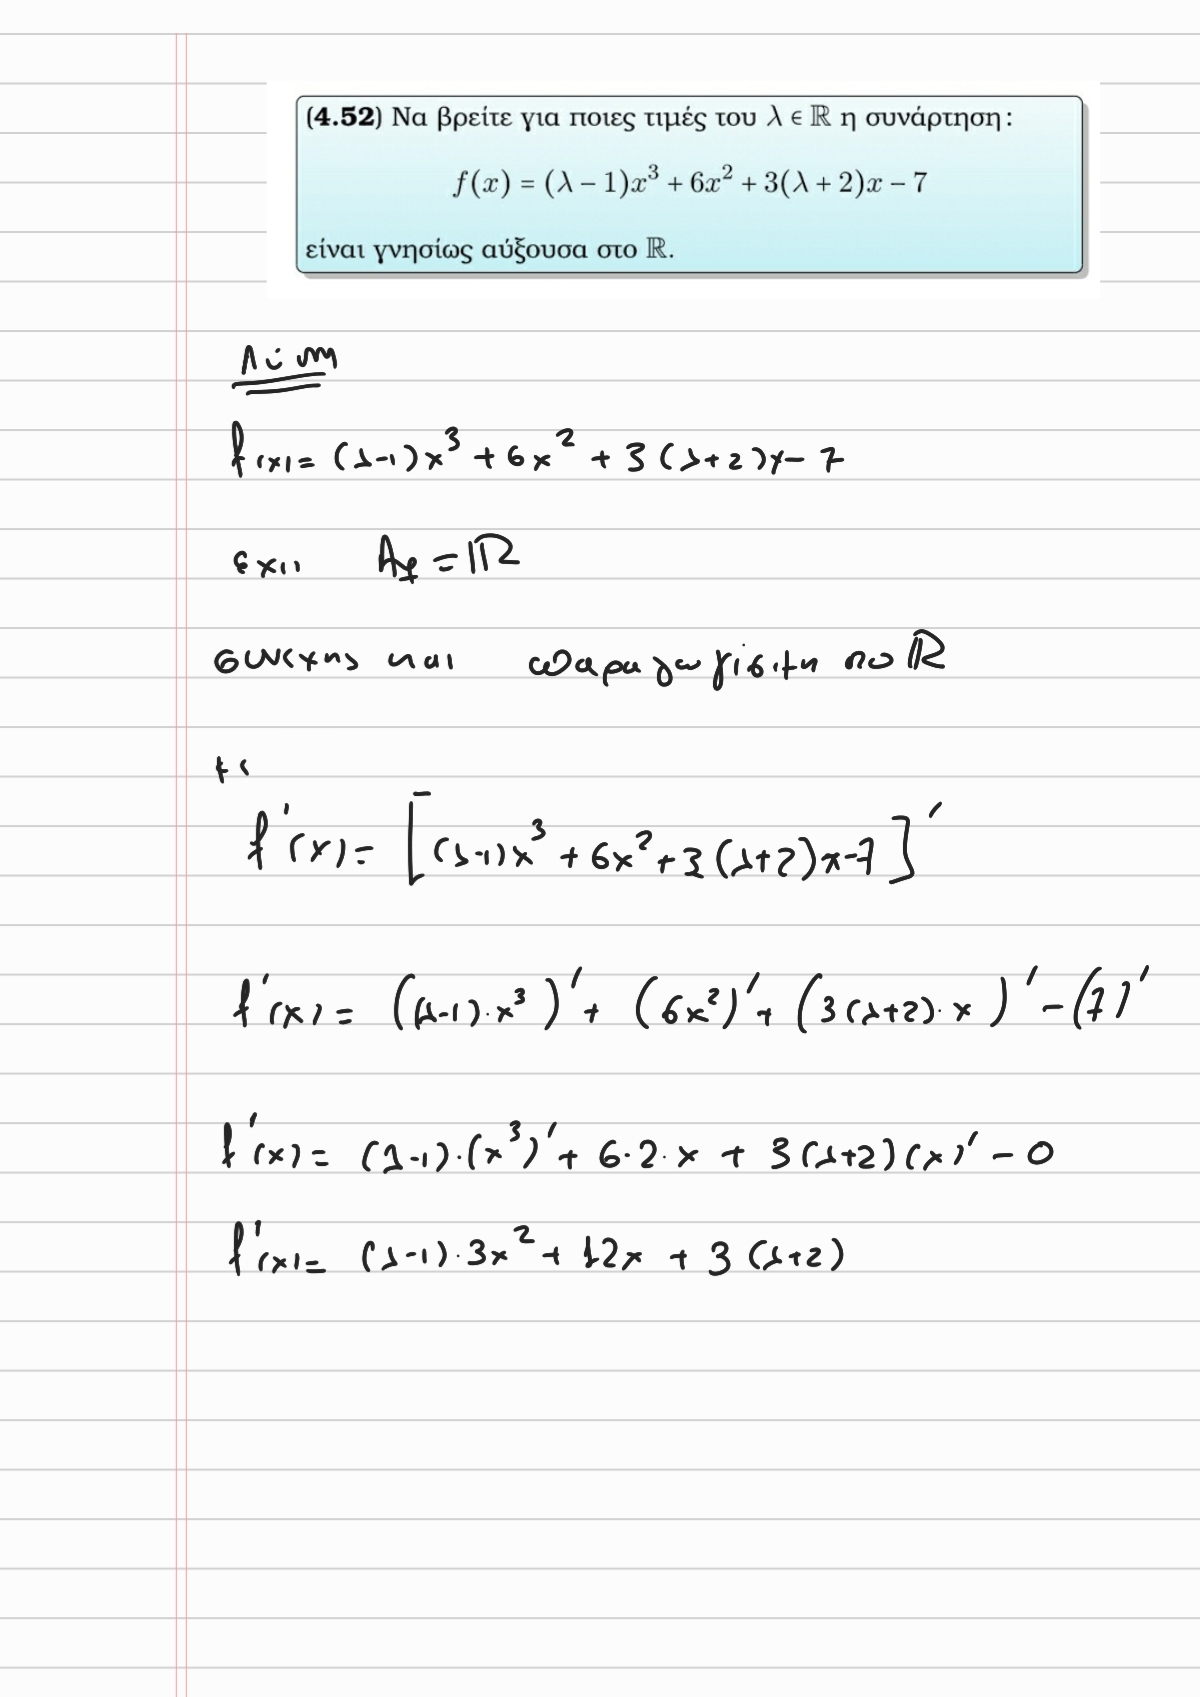 (4.52) Να βρείτε για ποιες τιμές του λ ∈ ℝ η συνάρτηση:
f(x) = (λ − 1)x³ + 6x² + 3(λ + 2)x − 7
είναι γνησίως αύξουσα στο ℝ.
Λύση
f(x) = (λ-1)x³ + 6x² + 3(λ+2)x - 7
έχει A_f = ℝ
συνεχής και παραγωγίσιμη στο ℝ
με
f'(x) = [(λ-1)x³ + 6x² + 3(λ+2)x-7]'
f'(x) = ((λ-1)·x³)' + (6x²)' + (3(λ+2)·x)' - (7)'
f'(x) = (λ-1)·(x³)' + 6·2·x + 3(λ+2)(x)' - 0
f'(x) = (λ-1)·3x² + 12x + 3(λ+2)